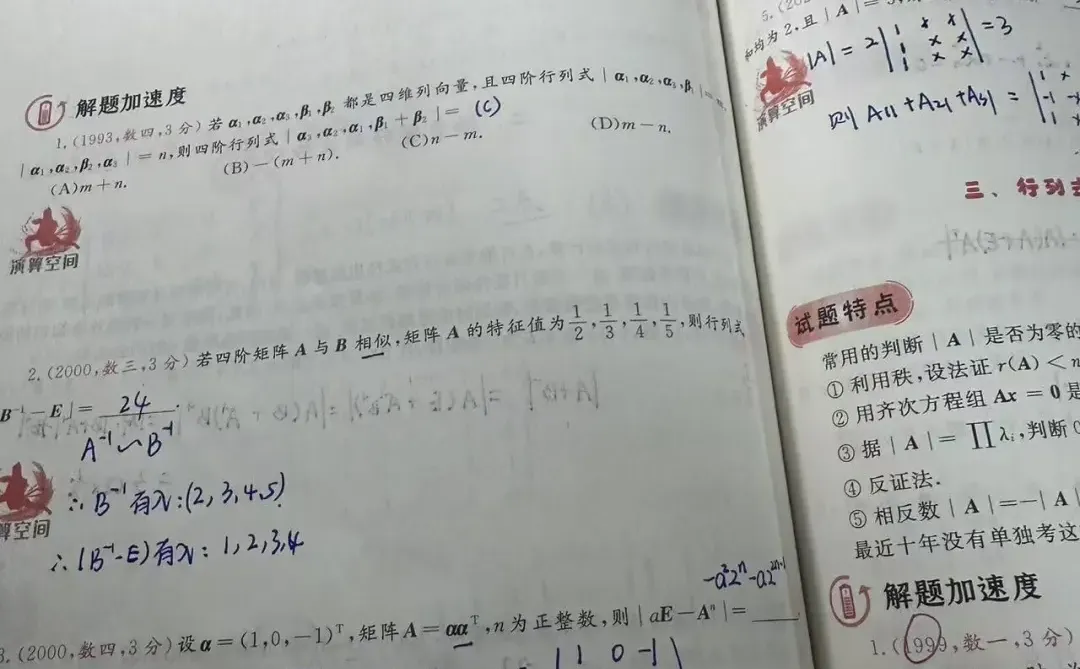 解题加速度
1.(1993,数四,3分)若α₁,α₂,α₃,β₁,β₂都是四维列向量,且四阶行列式|α₁,α₂,α₃,β₁|=m,
|α₁,α₂,β₂,α₃|=n,则四阶行列式|α₃,α₂,α₁,β₁+β₂|= (C)
(A)m+n. (B)-(m+n). (C)n-m. (D)m-n.
演算空间
2.(2000,数三,3分)若四阶矩阵A与B相似,矩阵A的特征值为1/2,1/3,1/4,1/5,则行列式
B⁻¹-E|= 24 .
A⁻¹∽B⁻¹
∴ B⁻¹有λ:(2,3,4,5)
算空间
∴ (B⁻¹-E)有λ: 1,2,3,4
-a²2ⁿ-a2²ⁿ⁻¹
3.(2000,数四,3分)设α=(1,0,-1)ᵀ,矩阵A=ααᵀ,n为正整数,则|aE-Aⁿ|=
1 0 -1
和均为2,且|A|=
|A|=2|1 x x =3
1 x x
1 x x|
演算空间
则 A₁₁+A₂₁+A₃₁=
三、行列式
试题特点
常用的判断|A|是否为零的
①利用秩,设法证r(A)<n
②用齐次方程组Ax=0是
③据|A|=∏λᵢ,判断0
④反证法.
⑤相反数|A|=-|A|
最近十年没有单独考这
解题加速度
1.(1999,数一,3分)